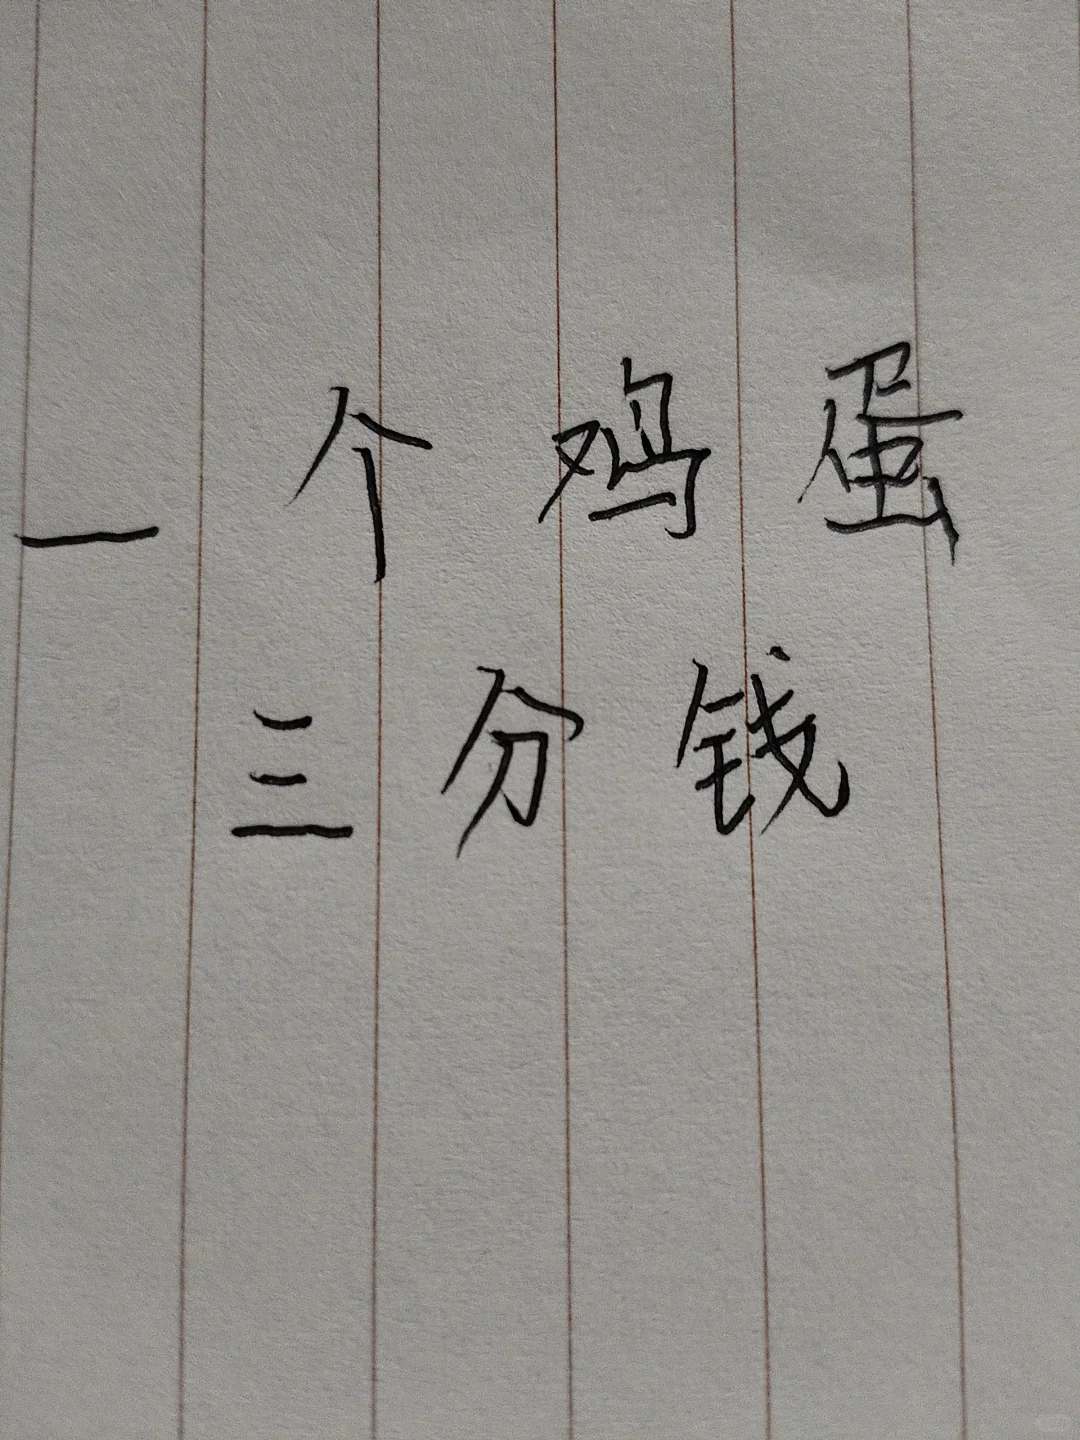 一个鸡蛋
三分钱